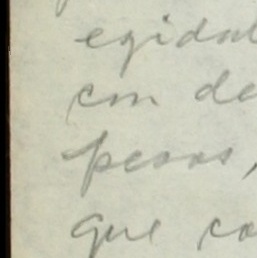 egidal
con de
pesos,
que co